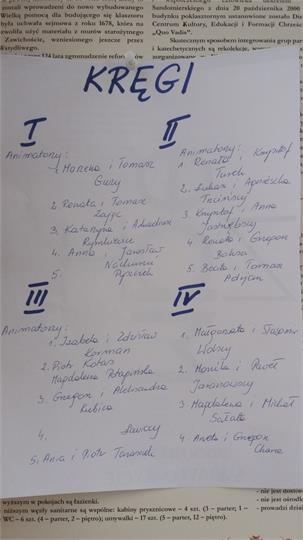 zostali wprowadzeni do nowo wybudowanego
Wielką pomocą dla budującego się klasztoru
była uchwała sejmowa z roku 1678, która na
zwoliła użyć materiału z murów starożytnego
Zawichoście, wzniesionego jeszcze przez
Wstydliwego.
124 lata zgromadzenie
Sandomierskiego z dnia 20 października 2000
budynku poklasztornym ustanowione zostało Dia
Centrum Kultury, Edukacji i Formacji Chrześc
„Quo Vadis”.
Skutecznym sposobem integrowania grup par
i katechetycznych są rekolekcje,
KRĘGI
I
Animatorzy:
1. Marzena i Tomasz
Gury
2. Renata i Tomasz
Zając
3. Katarzyna i Arkadiusz
4. Anna i Jarosław
5.
II
Animatorzy:
1. Renata i Krzysztof
Turek
2. Łukasz i Agnieszka
3. Krzysztof i Anna
Jastrzębscy
4. Renata i Grzegorz
5. Beata i Tomasz
III
Animatorzy:
1. Izabela i Zdzisław
Korman
2. Piotr Kotas
Magdalena Potapińska
3. Grzegorz i Aleksandra
Kubica
4.
5. Ania i Piotr Tarasiuk
IV
1. Małgorzata i Sławomir
2. Monika i Paweł
Taranowscy
3 Magdalena i Michał
Sałata
4 Aneta i Grzegorz
Chara
wyższym w pokojach są łazienki.
niższym węzły sanitarne są wspólne: kabiny prysznicowe – 4 szt. (3 – parter; 1 –
WC – 6 szt. (4 – parter, 2 – piętro); umywalki – 17 szt. (5 – parter, 12 – piętro).
- nie jest
- nie jest
- prowadzi dział